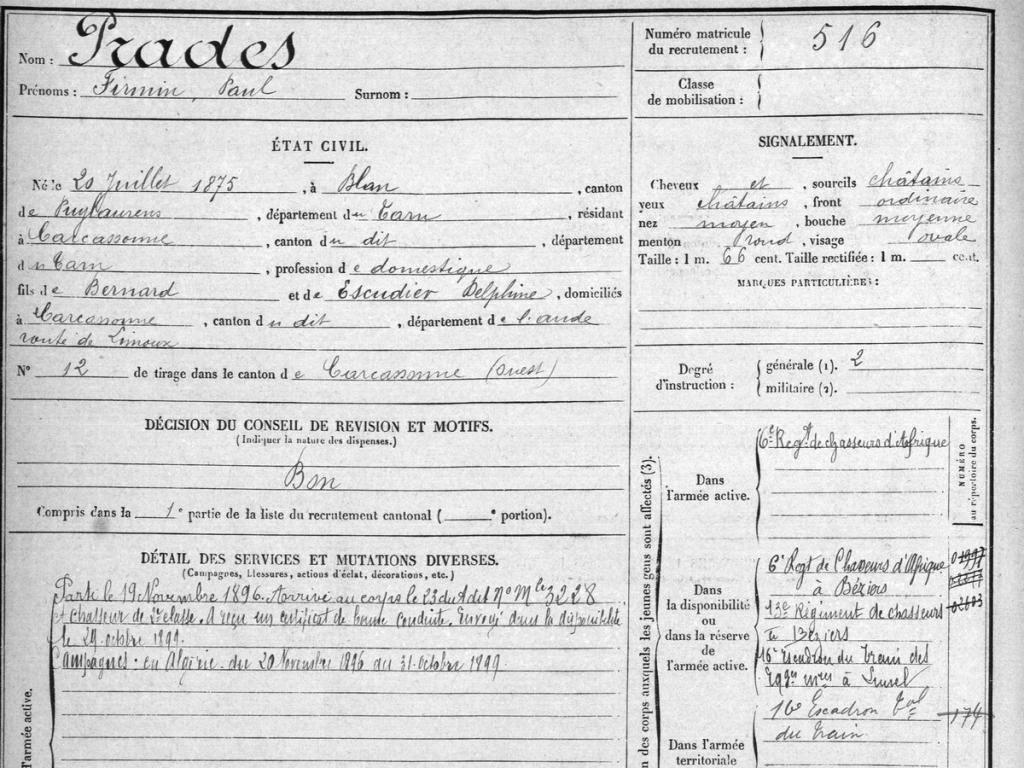 Nom : Prades
Prénoms : Firmin, Paul Surnom :
Numéro matricule
du recrutement : 516
Classe
de mobilisation :
ÉTAT CIVIL.
Né le 20 Juillet 1875, à Blan, canton
de Puylaurens, département du Tarn, résidant
à Carcassonne, canton du dit, département
du Tarn, profession de domestique
fils de Bernard et de Escudier Delphine, domiciliés
à Carcassonne, canton du dit, département de l'aude
route de Limoux
N° 12 de tirage dans le canton de Carcassonne (ouest)
SIGNALEMENT.
Cheveux et, sourcils châtains
yeux châtains, front ordinaire
nez moyen, bouche moyenne
menton rond, visage ovale
Taille : 1 m. 66 cent. Taille rectifiée : 1 m. cent.
MARQUES PARTICULIÈRES :
Degré
d'instruction :
générale (1). 2
militaire (2).
DÉCISION DU CONSEIL DE REVISION ET MOTIFS.
(Indiquer la nature des dispenses.)
Bon
Compris dans la 1e partie de la liste du recrutement cantonal ( e portion).
DÉTAIL DES SERVICES ET MUTATIONS DIVERSES.
(Campagnes, blessures, actions d'éclat, décorations, etc.)
Parti le 19 Novembre 1896. Arrivé au corps le 23 du dt et n° Mle 3228
chasseur de 2e classe. A reçu un certificat de bonne conduite. Envoyé dans la disponibilité
le 29 octobre 1899.
Campagnes : en Algérie du 20 Novembre 1896 au 31 octobre 1899.
l'armée active.
n des corps auxquels les jeunes gens sont affectés (3).
Dans
l'armée active.
6e Regt de chasseurs d'Afrique
NUMÉRO
au répertoire du corps.
Dans
la disponibilité
ou
dans la réserve
de
l'armée active.
6e Regt de Chasseurs d'Afrique
à Béziers
13e Régiment de chasseurs
à Béziers
16e Escadron du Train des
Eqges mres à Lunel
Dans l'armée
territoriale
16e Escadron Tal
du Train
174